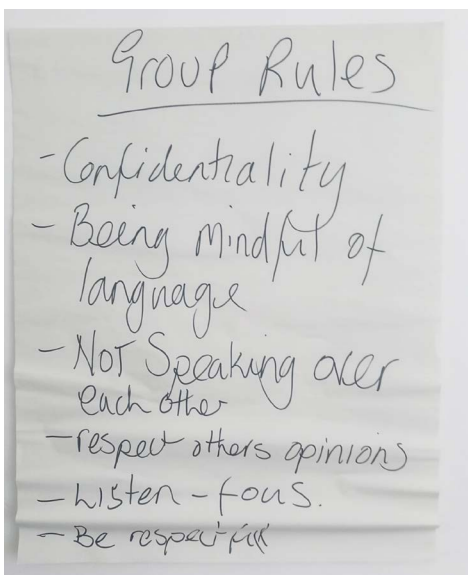 Group Rules
- Confidentiality
- Being Mindful of
language
- NOT Speaking over
each other
- respect others opinions
- Listen - focus.
- Be respectful